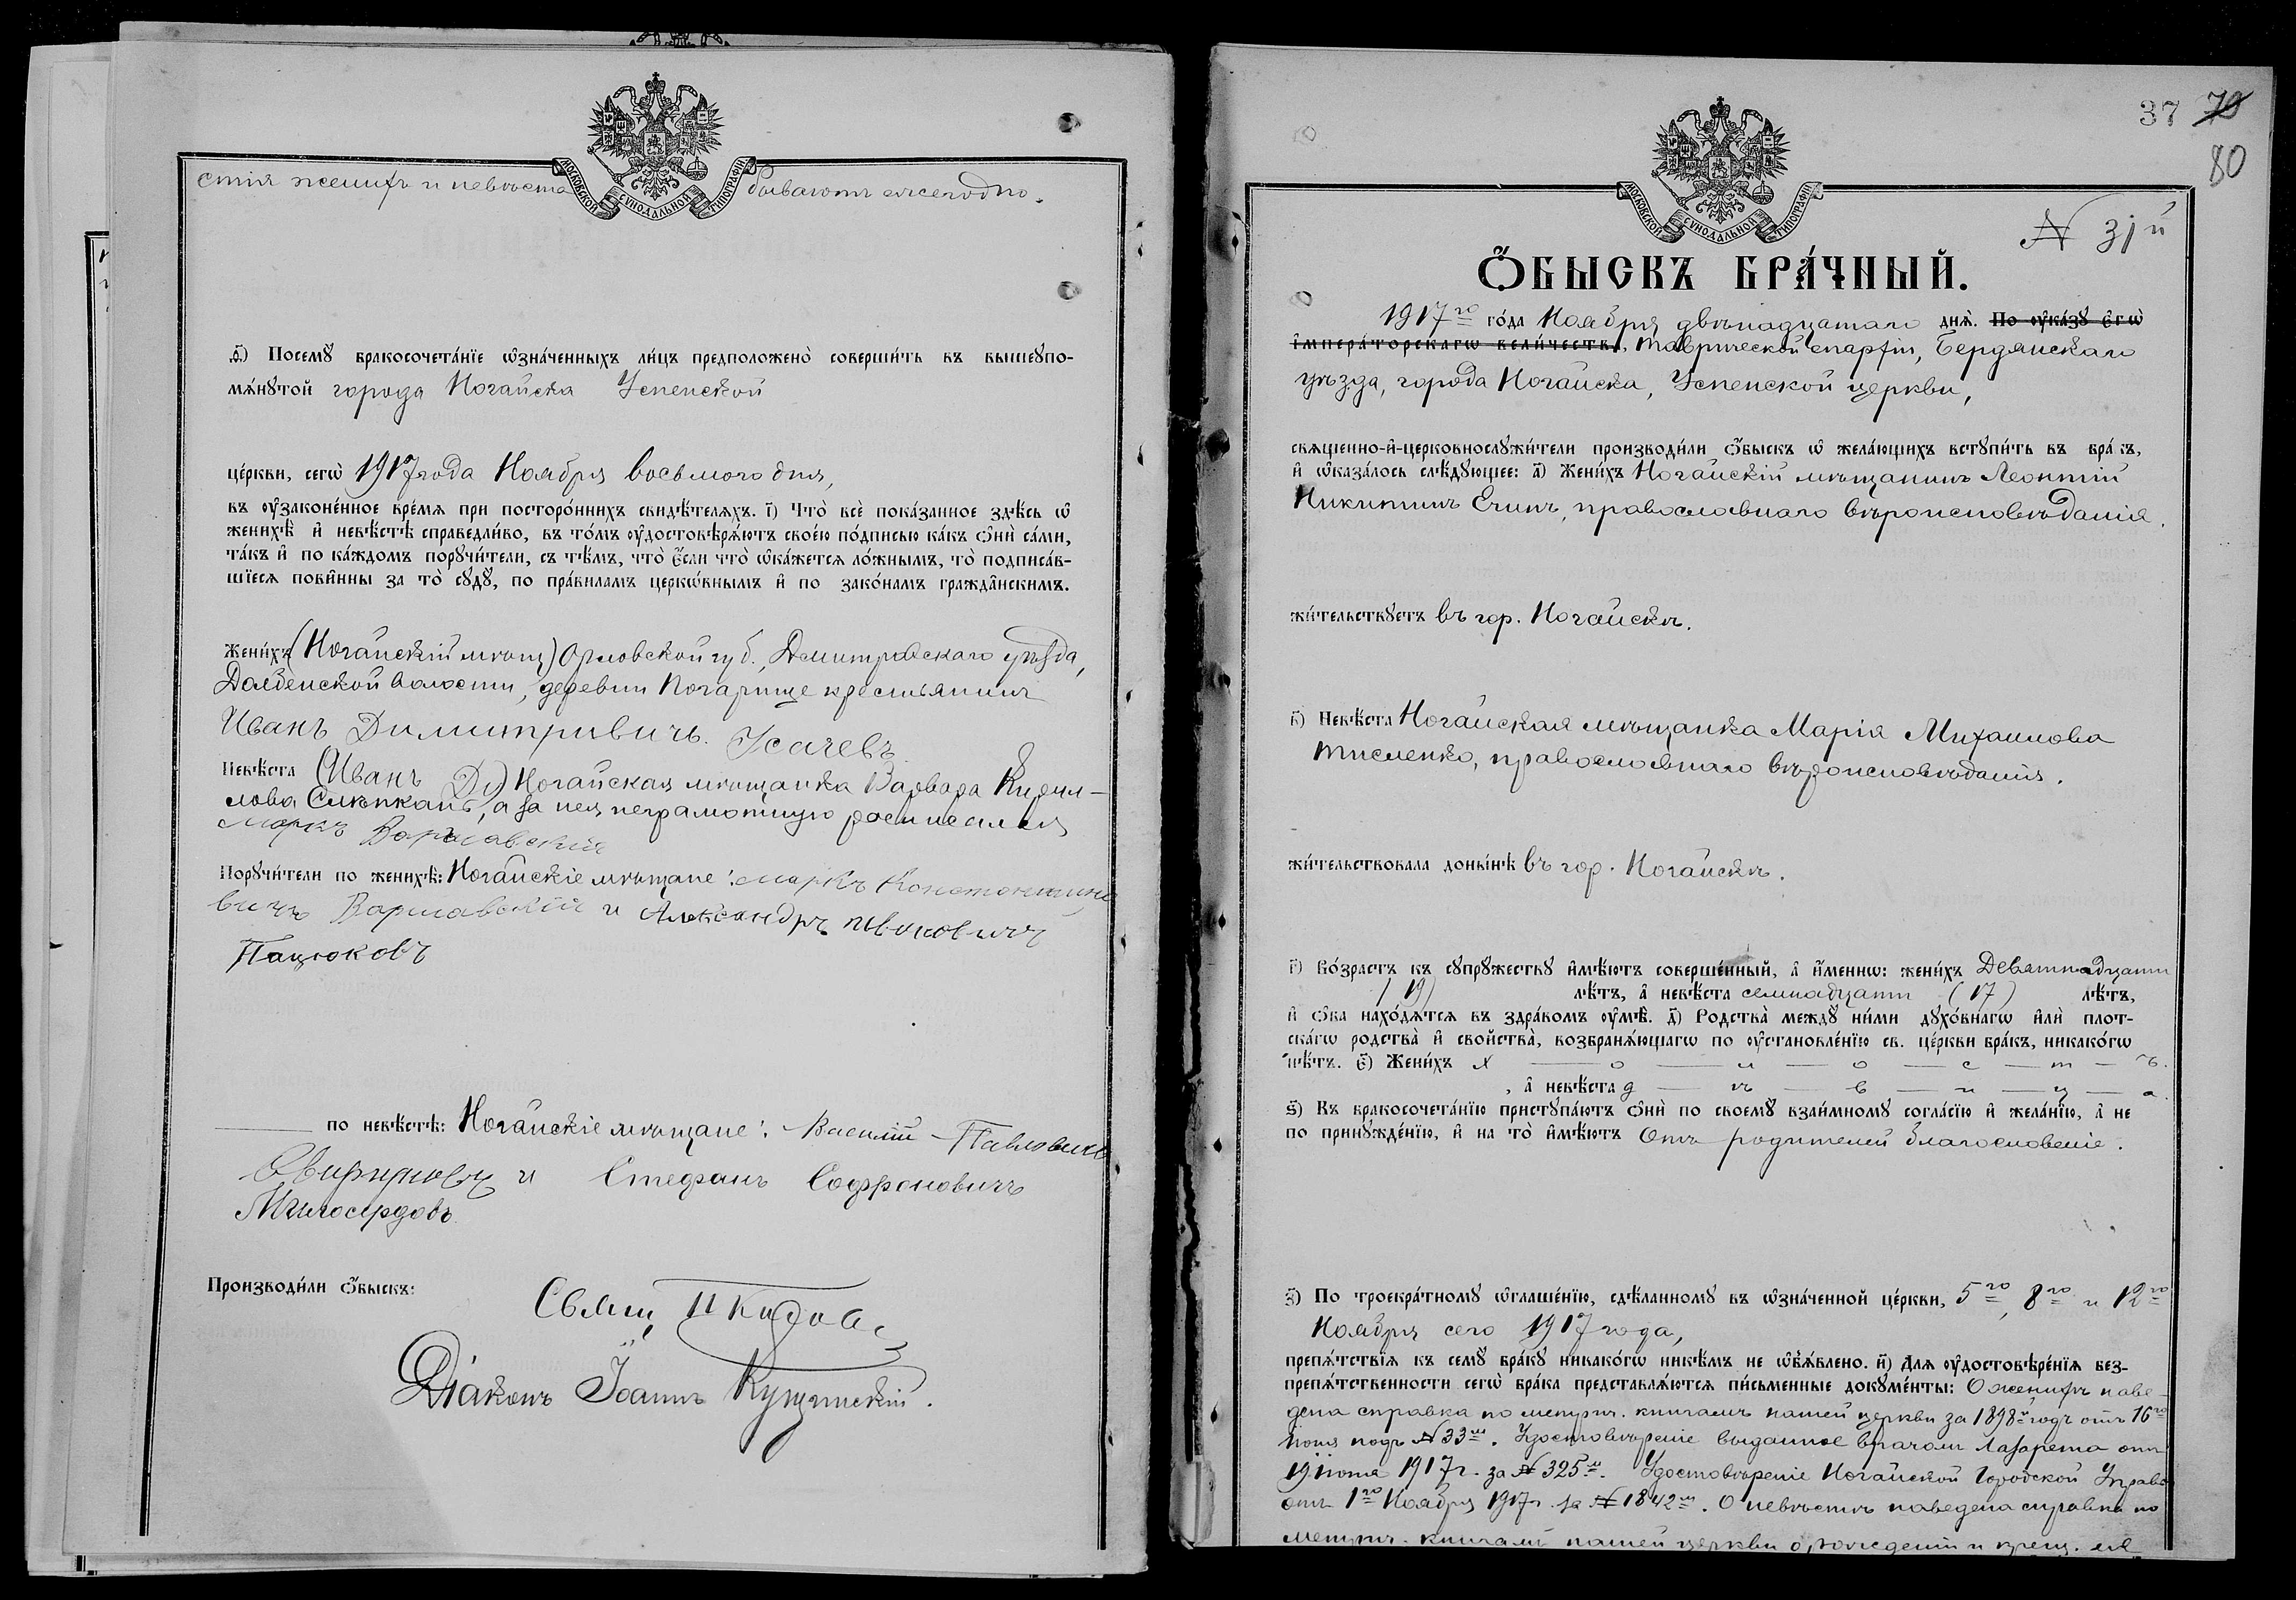 МОСКОВСКОЙ СѴНОДАЛЬНОЙ ТИПОГРАФІИ
стія женихъ и невѣста бываютъ ежегодно.
ѳ҃) Посемꙋ̀ бракосочета́нїе ѡ҆зна́ченныхъ ли́цъ предположено̀ соверши́ть въ вышеꙋпо-
мѧ́нꙋтой города Ногайска Успенской
це́ркви, сегѡ̀ 1917 года Ноября восьмого дня,
въ ᲂу҆законе́нное вре́мѧ при посторо́ннихъ свидѣ́телѧхъ. і҃) Что̀ всѐ пока́занное здѣ́сь ѡ҆
женихѣ̀ и҆ невѣ́стѣ справедли́во, въ то́мъ ᲂу҆достовѣрѧ́ютъ свое́ю по́дписью ка́къ ѻ҆нѝ са́ми,
та́къ и҆ по ка́ждомъ порꙋчи́тели, съ тѣ́мъ, что̀ є҆́сли что̀ ѡ҆ка́жетсѧ ло́жнымъ, то̀ подписа́в-
шїесѧ пови́нны за то̀ сꙋдꙋ̀, по пра́виламъ церкѡ́внымъ и҆ по зако́намъ гражда́нскимъ.
Жени́хъ (Ногайскій мѣщ) Орловской губ., Дмитровскаго уѣзда,
Долбенской волости, деревни Погарище крестьянинъ
Иванъ Димитривичь. Усачевъ
Невѣ́ста (Иванъ Ди) Ногайская мѣщанка Варвара Кирил-
лова Слѣпкань, а за нея неграмотную росписался
Маркъ Варшавскій
Порꙋчи́тели по женихѣ̀: Ногайскіе мѣщане: Маркъ Константино
вичъ Варшавскій и Александръ Ивановичъ
Пацюковъ
по невѣ́стѣ: Ногайскіе мѣщане: Василій Павловичъ
и Стефанъ Софроновичъ
Милосердовъ
Производи́ли ѻ҆́быскъ:
Свящ.
Діаконъ Іоаннъ
37 70
80
МОСКОВСКОЙ СѴНОДАЛЬНОЙ ТИПОГРАФІИ
N 31й
Ѻ҆́БЫСКЪ БРА́ЧНЫЙ.
1917го го́да Ноября двѣнадцатаго днѧ̀. По ᲂу҆ка́зꙋ Є҆гѡ̀
І҆мпера́торскагѡ вели́чества, Таврической епархіи, Бердянскаго
уѣзда, города Ногайска, Успенской церкви,
свѧще́нно-и҆-церковнослꙋжи́тели производи́ли ѻ҆́быскъ ѡ҆ жела́ющихъ вступи́ть въ бра́къ,
и҆ ѡ҆каза́лось слѣ́дꙋющее: а҃) Жени́хъ Ногайскій мѣщанинъ Леонтій
Никитинъ Егинъ, православнаго вѣроисповѣданія.
жи́тельствꙋетъ въ гор. Ногайскѣ.
в҃) Невѣ́ста Ногайская мѣщанка Марія Михаилова
Тисленко, православнаго вѣроисповѣданія.
жи́тельствовала доны́нѣ въ гор. Ногайскѣ.
г҃) Во́зрастъ къ сꙋпрꙋ́жествꙋ и҆мѣ́ютъ соверше́нный, а҆ и҆́меннѡ: жени́хъ Девятнадцати
(19) лѣ́тъ, а҆ невѣ́ста семнадцати (17) лѣ́тъ,
и҆ ѻ҆́ба нахо́дѧтсѧ въ здра́вомъ ᲂу҆мѣ̀. д҃) Родства̀ междꙋ ни́ми дꙋхо́внагѡ и҆лѝ плот-
ска́гѡ родства̀ и҆ сво́йства, возбранѧ́ющагѡ по ᲂу҆становле́нїю св. це́ркви бра́къ, никако́гѡ
нѣ́тъ. є҃) Жени́хъ х — о — л — о — с — т — ъ.
, а҆ невѣ́ста д — ѣ — в — и — ц — а.
ѕ҃) Къ бракосочета́нїю пристꙋпа́ютъ ѻ҆нѝ по своемꙋ̀ взаи́мномꙋ согла́сїю и҆ жела́нїю, а҆ не
по принꙋжде́нїю, и҆ на то̀ и҆мѣ́ютъ Отъ родителей благословеніе.
з҃) По троекра́тномꙋ ѡ҆глаше́нїю, сдѣ́ланномꙋ въ ѡ҆зна́ченной це́ркви, 5го, 8го и 12го
Ноября сего 1917 года,
препѧ́тствїѧ къ семꙋ̀ бра́кꙋ никако́гѡ никѣ́мъ не ѡ҆б̾ѧ́влено. и҃) Длѧ ᲂу҆достовѣре́нїѧ без-
препѧ́тственности сегѡ̀ бра́ка представлѧ́ютсѧ пи́сьменные докꙋме́нты: О женихѣ наве-
дена справка по метрич. книгамъ нашей церкви за 1898й годъ отъ 16го
подъ N 33м. Удостовѣреніе выданное врачомъ Лазарета отъ
19 1917г. за N 325м. Удостовѣреніе Ногайской Городской Управы
отъ 1го Ноября 1917г. за N 1842м. О невѣстѣ наведена справка по
метрич. книгамъ нашей церкви о рожденіи и крещ. ея